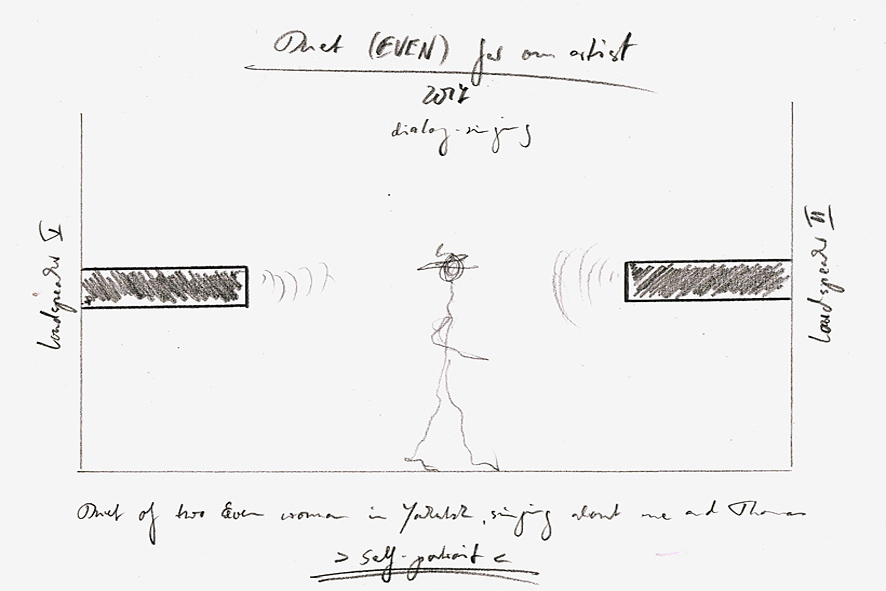 Duet (EVEN) for one artist
2017
dialog-singing
Loudspeaker I
Loudspeaker II
Duet of two Even woman in Yakutsk, singing about me and Thomas
> self-portrait <